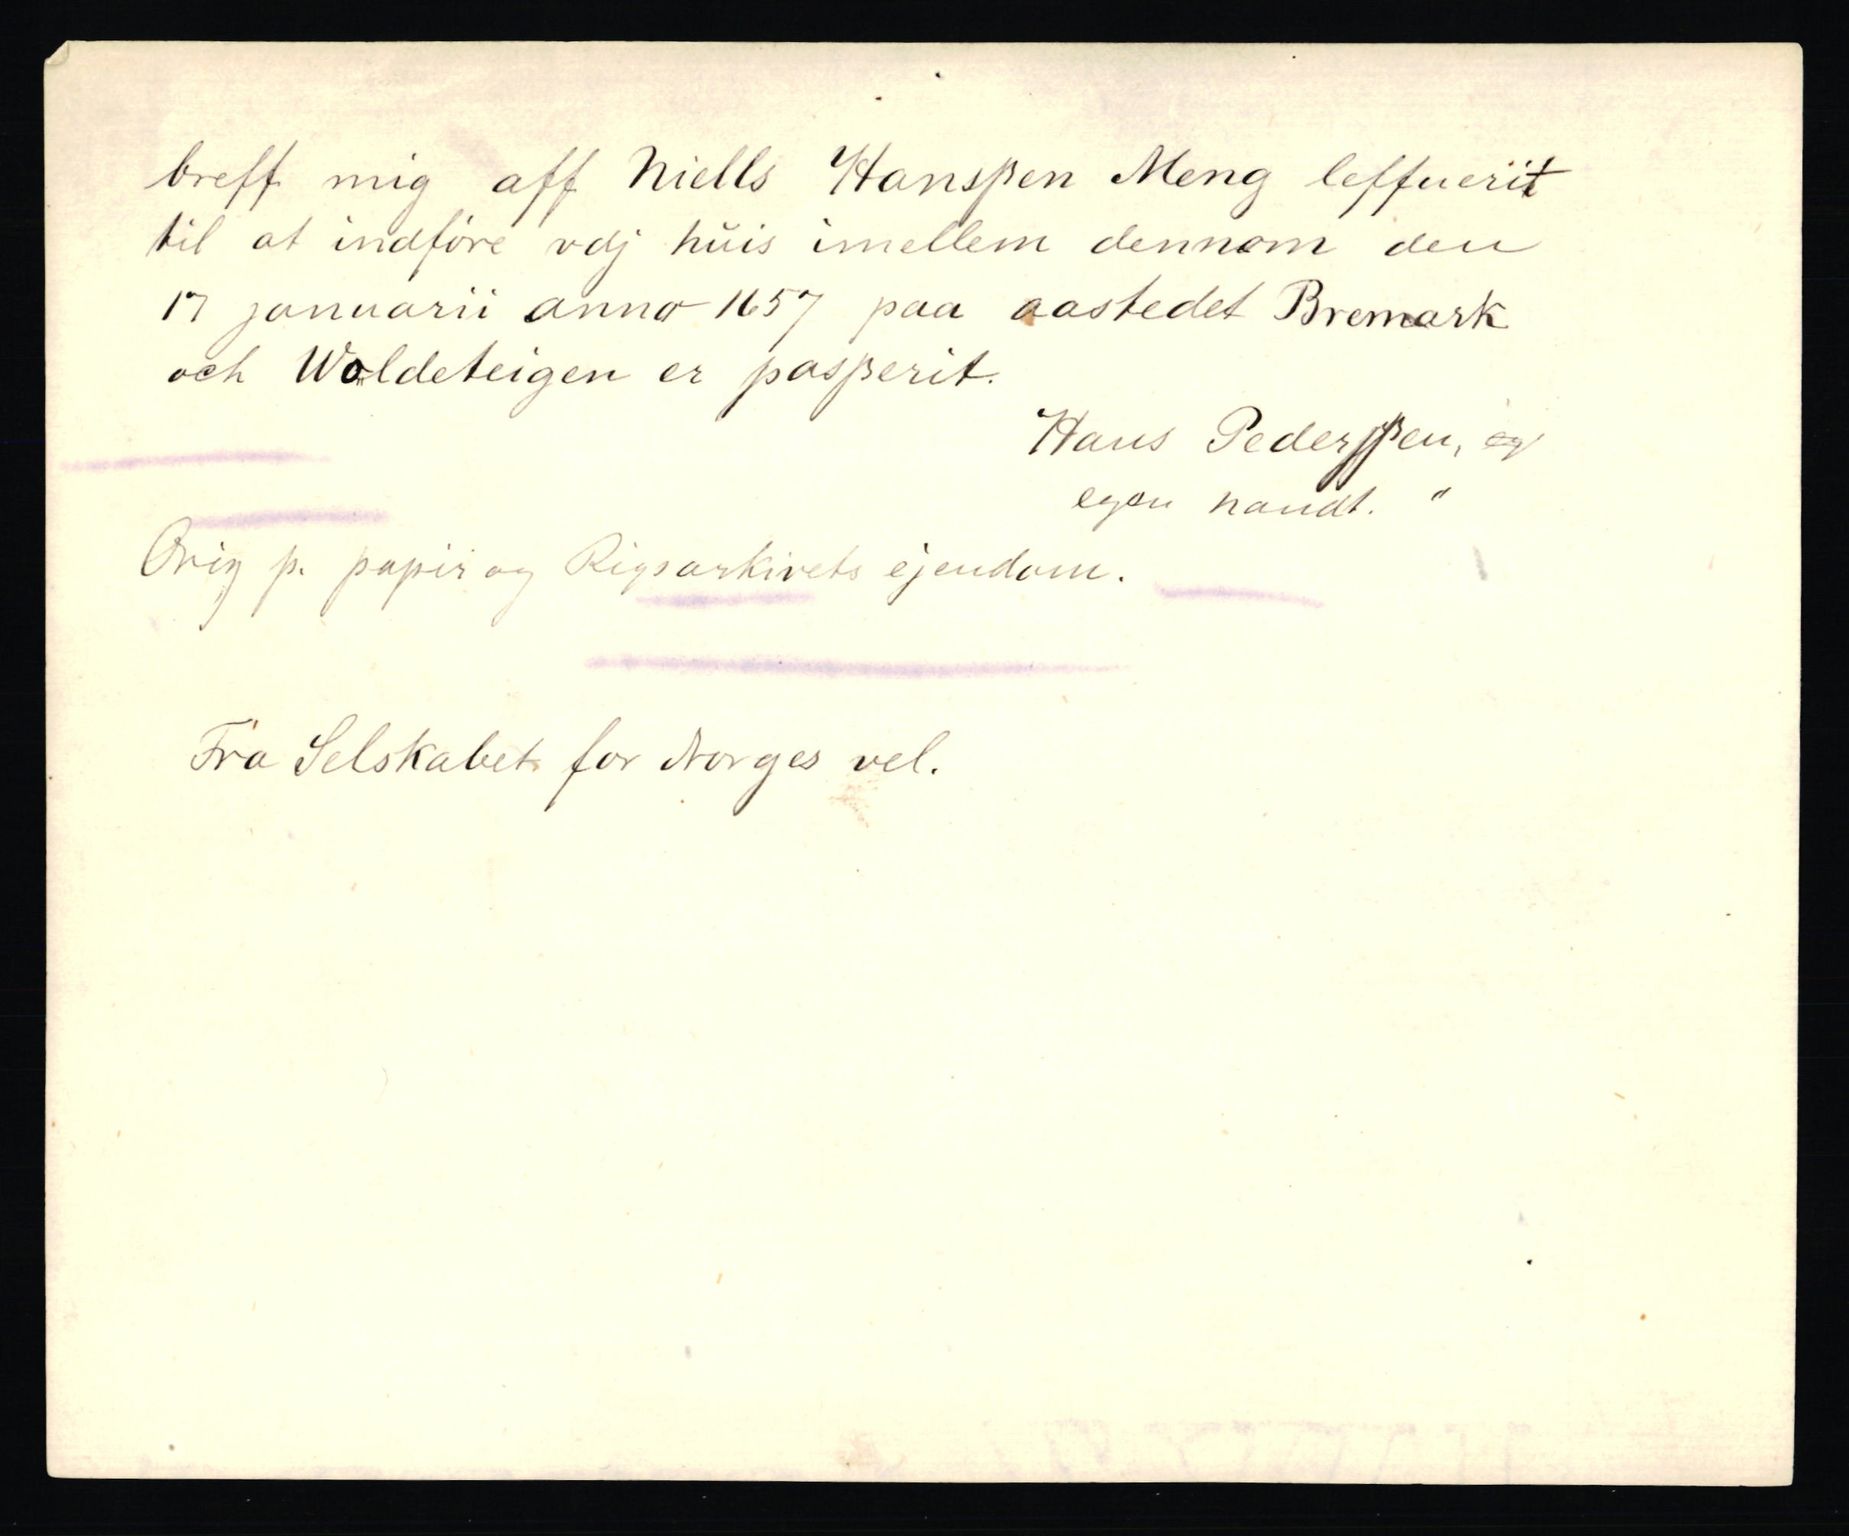 breff mig aff Niells Hansßen Meng leffuerit
til at indföre vdj huis imellem dennom den
17 januarii anno 1657 paa aastedet Bremark
och Woldeteigen er pasßerit.
Hans Pedersßen, eg
egen handt. "
Orig p. papir og Rigsarkivets ejendom.
Fra Selskabet for Norges vel.